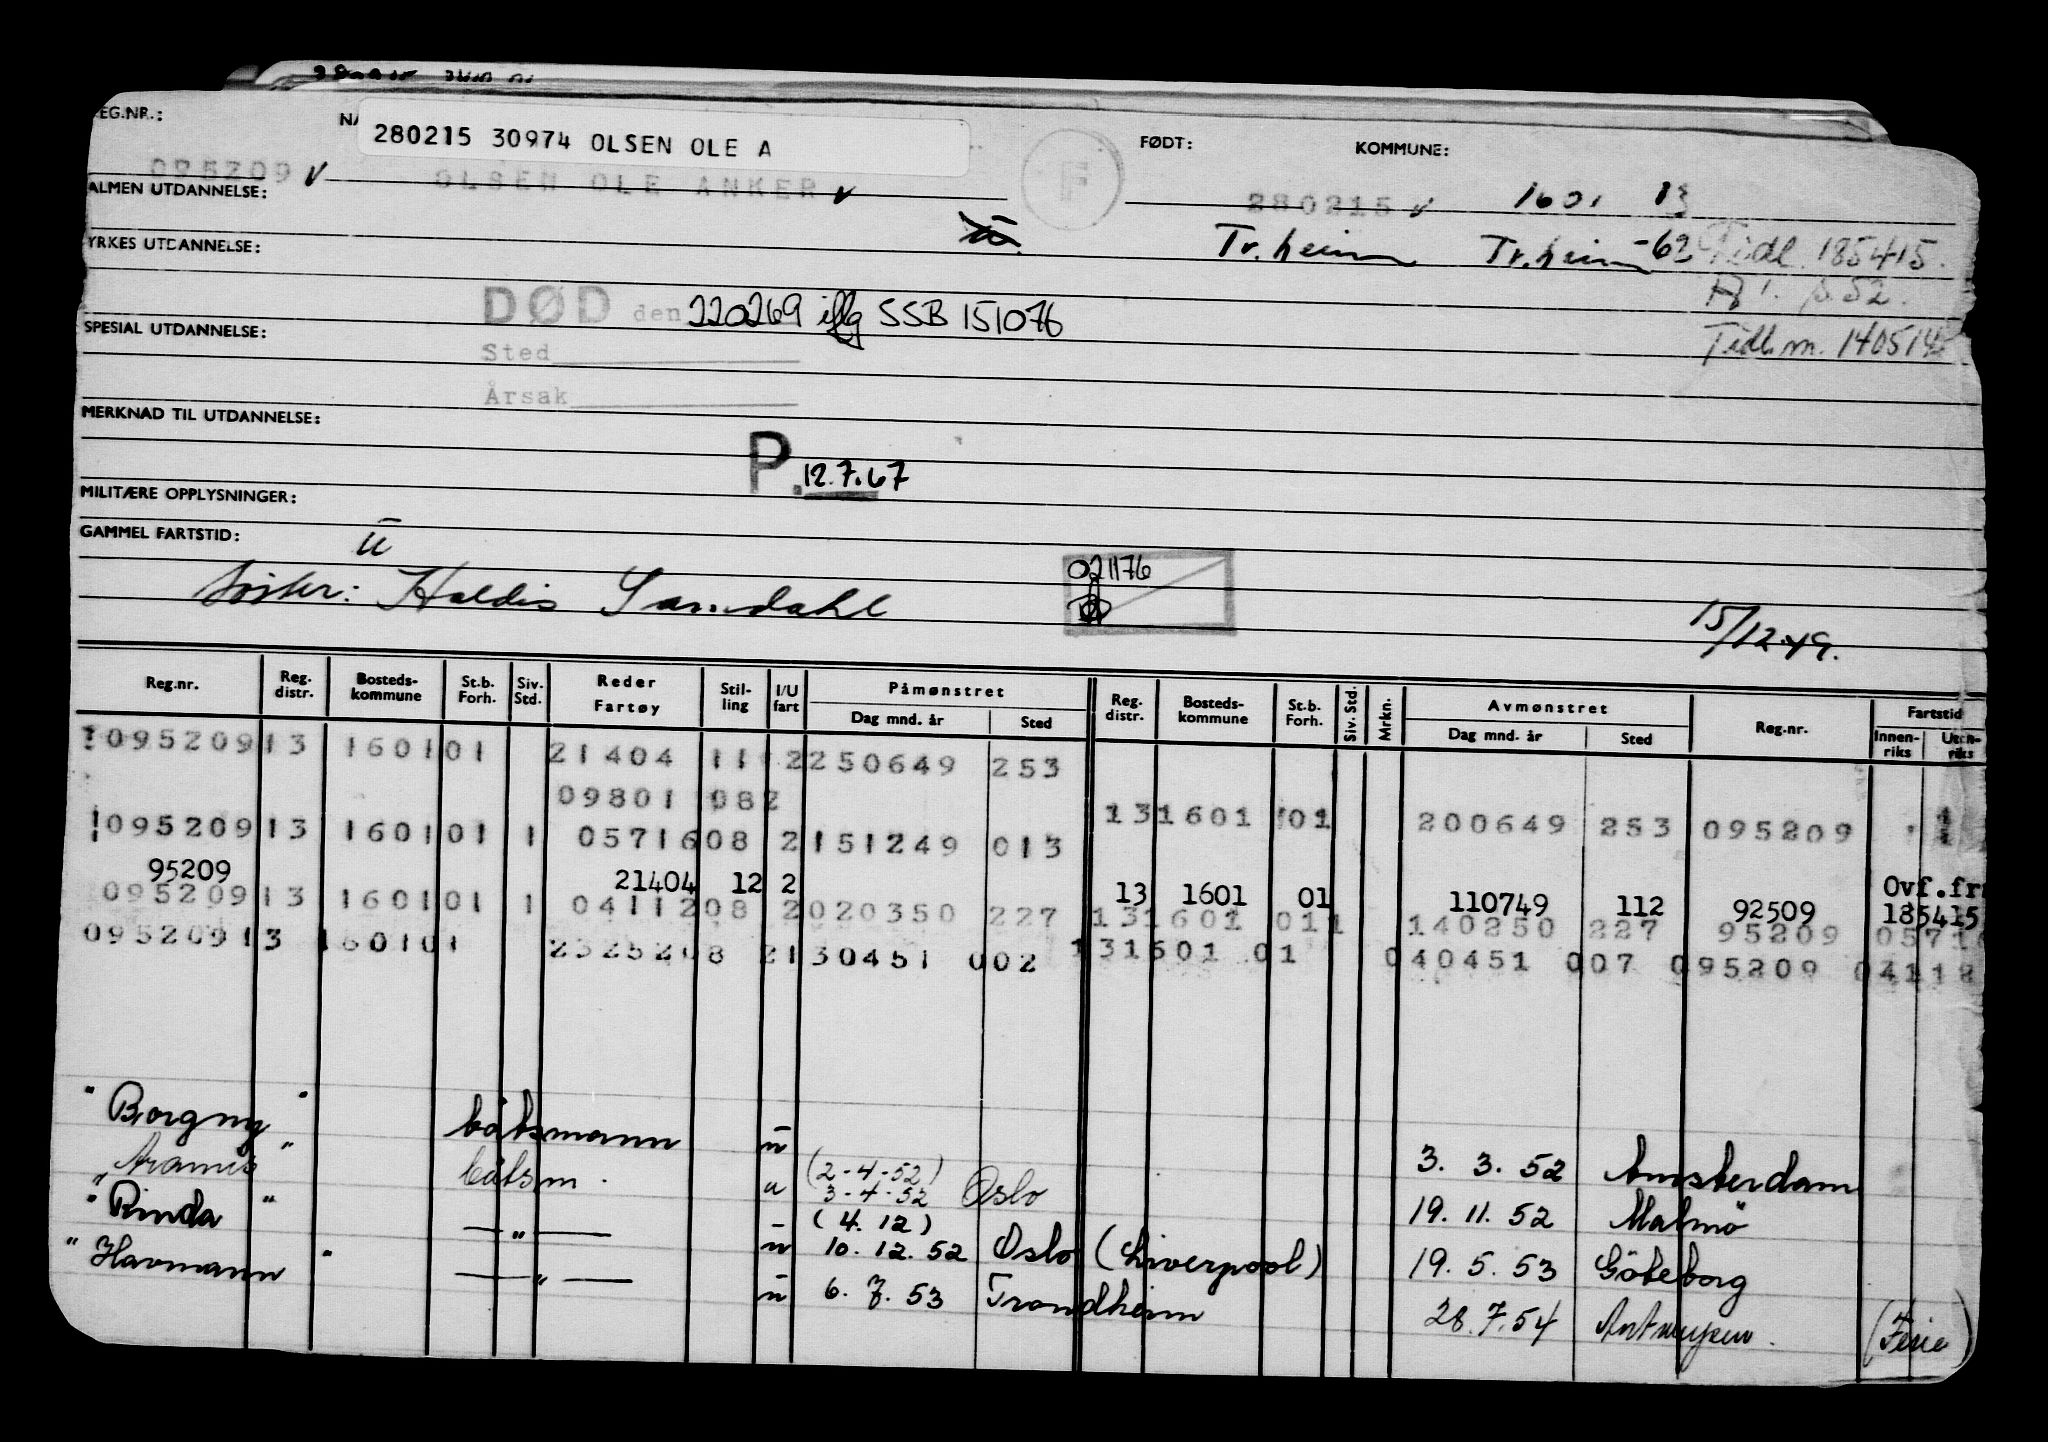 EG.NR.: NA 280215 30974 OLSEN OLE A FØDT: KOMMUNE:
095209 OLSEN OLE ANKER F 280215 1601 13
ALMEN UTDANNELSE:
ū Tr.heim Tr.heim -62 Tidl. 185415.
YRKES UTDANNELSE:
DØD den 220269 iflg SSB 151076
Tidl. m. 140514
SPESIAL UTDANNELSE: Sted
Årsak
MERKNAD TIL UTDANNELSE:
P. 12.7.67
MILITÆRE OPPLYSNINGER:
GAMMEL FARTSTID: ū
021176
Søster: Haldis Sandahl
15/12.49.
Reg.nr. Reg. distr. Bosteds-kommune St.b. Forh. Siv. Std. Reder Fartøy Stil-ling I/U fart Påmønstret Dag mnd. år Sted Reg. distr. Bosteds-kommune St.b. Forh. Siv. Std. Mrkn. Avmønstret Dag mnd. år Sted Reg.nr. Fartstid Innen-riks Uten-riks
!095209 13 1601 01 21404 11 2 250649 253
09801 082 13 1601 01 200649 253 095209
!095209 13 1601 01 1 05716 08 2 151249 013
95209 21404 12 2 13 1601 01 110749 112 92509 Ovf.fr 185415
095209 13 1601 01 1 04112 08 2 020350 227 13 1601 01 1 140250 227 95209 0571
095209 13 1601 01 23252 08 2 130451 002 13 1601 01 040451 007 095209 04112
"Borgny" båtsmann ū 3. 3. 52 Amsterdam
"Aramis" båtsm. u (2-4-52) 3-4-52 Oslo 19. 11. 52 Malmö
"Rinda" —„— ū (4.12) 10. 12. 52 Oslo (Liverpool) 19. 5. 53 Göteborg
"Havmann" —„— ū 6. 7. 53 Trondheim 28.7.54 Antwerpen. (Ferie)